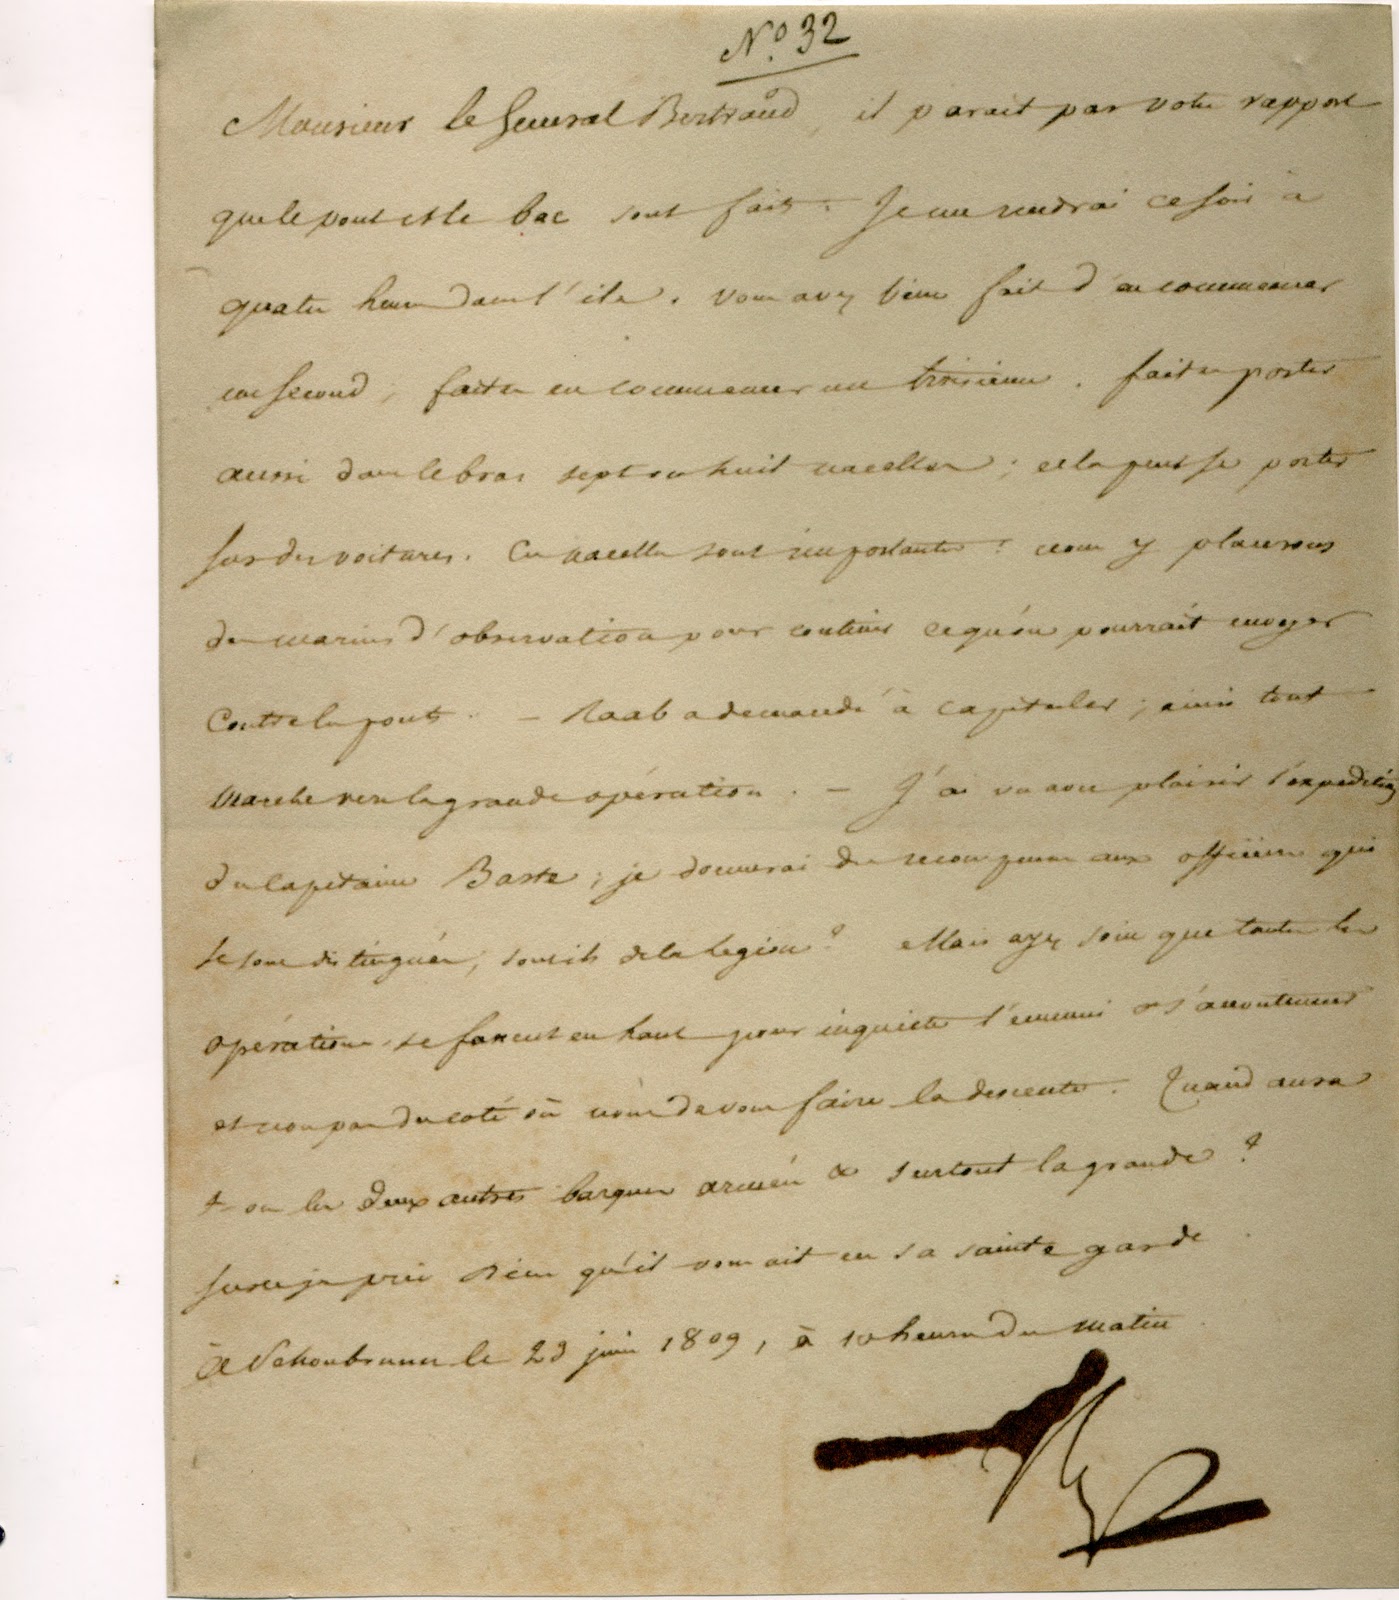 N.o 32
Monsieur le Général Bertrand, il parait par votre rapport
que le pont et le bac sont faits. Je me rendrai ce soir à
quatre heures dans l'ile. Vous avez bien fait d'en commencer
un second, faites en commencer un troisième. faites porter
aussi dans le bras sept ou huit nacelles ; cela peut se porter
sur des voitures. Ces nacelles sont importantes : nous y placerons
des marins d'observation pour contenir ce qu'on pourrait envoyer
contre les ponts. — Raab a demandé à capituler ; ainsi tout
marche vers la grande opération. — J'ai vu avec plaisir l'expédition
du Capitaine Baste ; je donnerai des récompenses aux officiers qui
se sont distingués, sont-ils de la Légion ? Mais ayez soin que toutes les
opérations se fassent en haut pour inquiéter l'ennemi &
et non pas du coté où nous devons faire la descente. Quand aura
t-on les deux autres barques armées & surtout la grande ?
Sur ce je prie Dieu qu'il vous ait en sa sainte garde
à Schonbrunn le 23 juin 1809, à 10 heures du matin